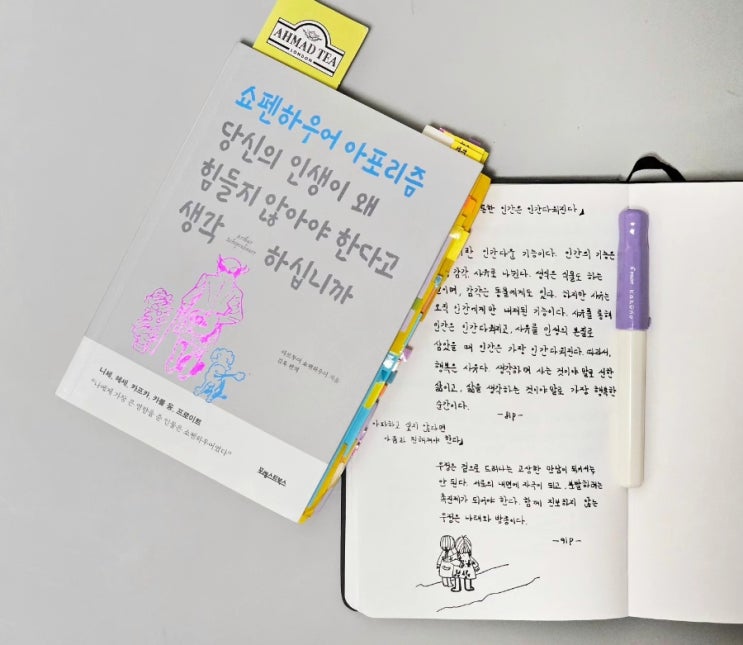 AHMAD TEA
LONDON
쇼펜하우어 아포리즘
당신의 인생이 왜
힘들지 않아야 한다고
생각 하십니까
arthur
schopenhauer
아르투어 쇼펜하우어 지음
김욱 편역
니체, 헤세, 카프카, 카를 융, 프로이트
"나에게 가장 큰 영향을 준 인물은 쇼펜하우어였다"
포레스트북스
인간은 인간다워진다
인간다울 기능이다. 인간의 기능은
감각, 사유로 나뉜다. 생식은 식물도 하는
이며, 감각은 동물에게도 있다. 하지만 사유는
오직 인간에게만 내재된 기능이다. 사유를 통해
인간은 인간다워지고, 사유를 인생의 본질로
삼았을 때 인간은 가장 인간다워진다. 따라서,
행복은 사유다. 생각하며 사는 것이야말로 선한
삶이고, 삶을 생각하는 것이야말로 가장 행복한
순간이다.
아파하고 싶지 않다면
아픔과 친해져야 한다
우정은 겉으로 드러나는 고상한 만남이 되어서는
안 된다. 서로의 내면에 자극이 되고, 분발하려는
촉진제가 되어야 한다. 함께 진보하지 않는
우정은 나태와 방종이다.
-91P-
PILOT kakuno